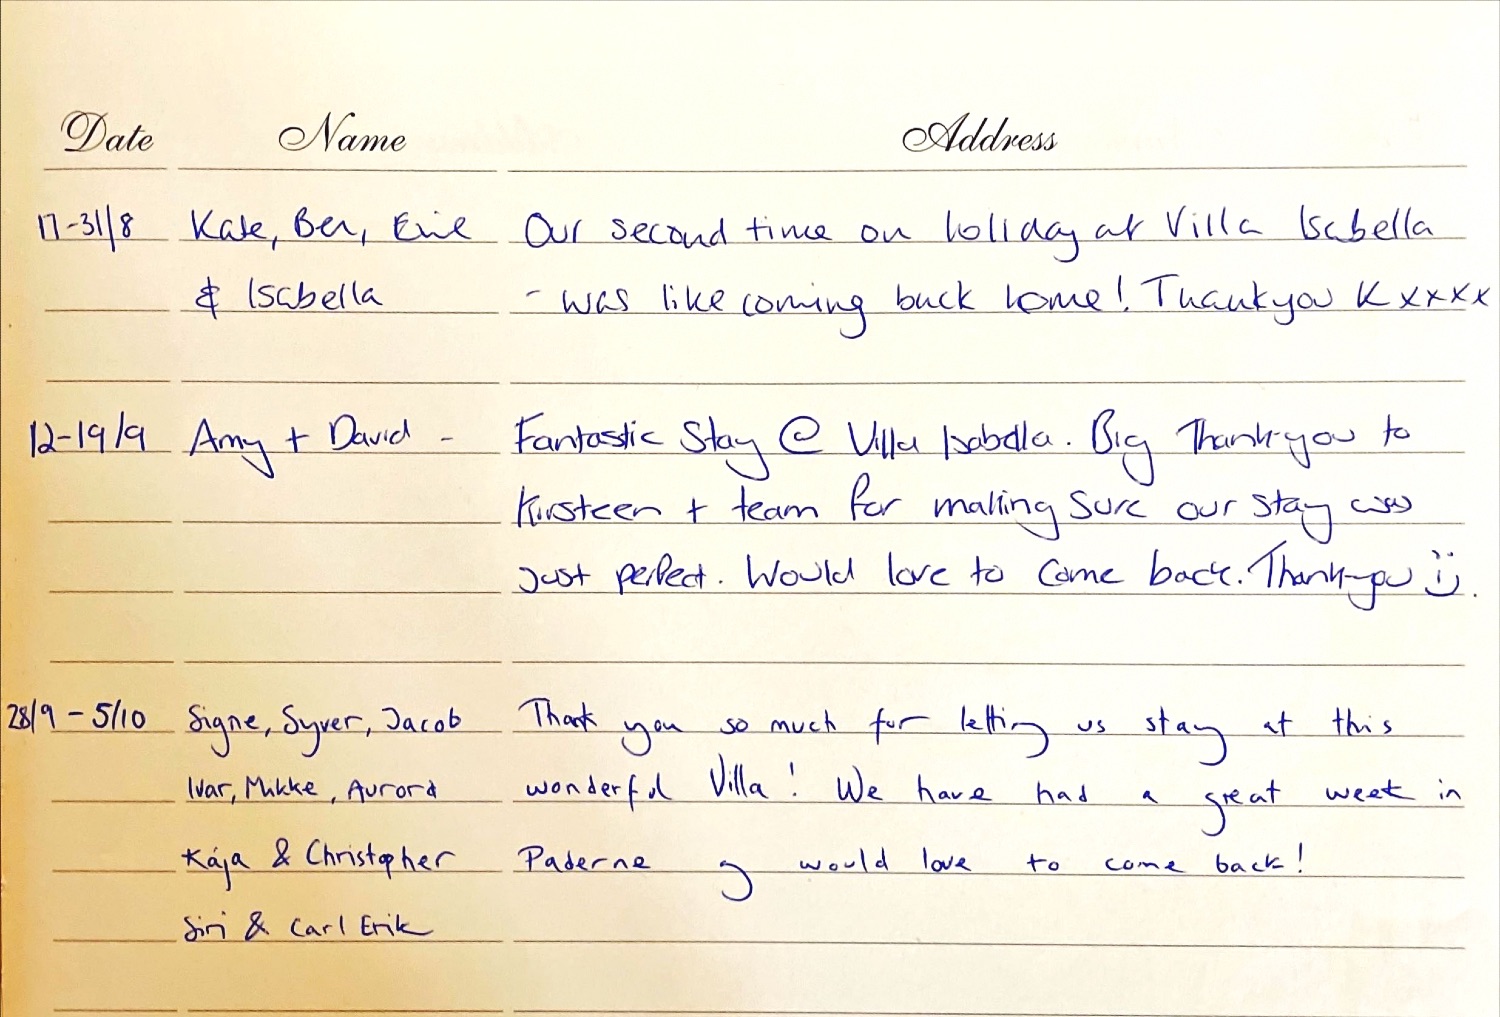 Date Name Address
17-31/8 Kate, Ben, Evie Our second time on holiday at Villa Isabella
& Isabella - was like coming back home! Thankyou K xxxx
12-19/9 Amy + David - Fantastic Stay @ Villa Isabella. Big Thank-you to
Kirsteen + team for making sure our stay was
just perfect. Would love to come back. Thank-you :).
28/9 - 5/10 Signe, Syver, Jacob Thank you so much for letting us stay at this
Ivar, Mikke, Aurora wonderful Villa! We have had a great week in
Kaja & Christopher Paderne og would love to come back!
Siri & Carl Erik